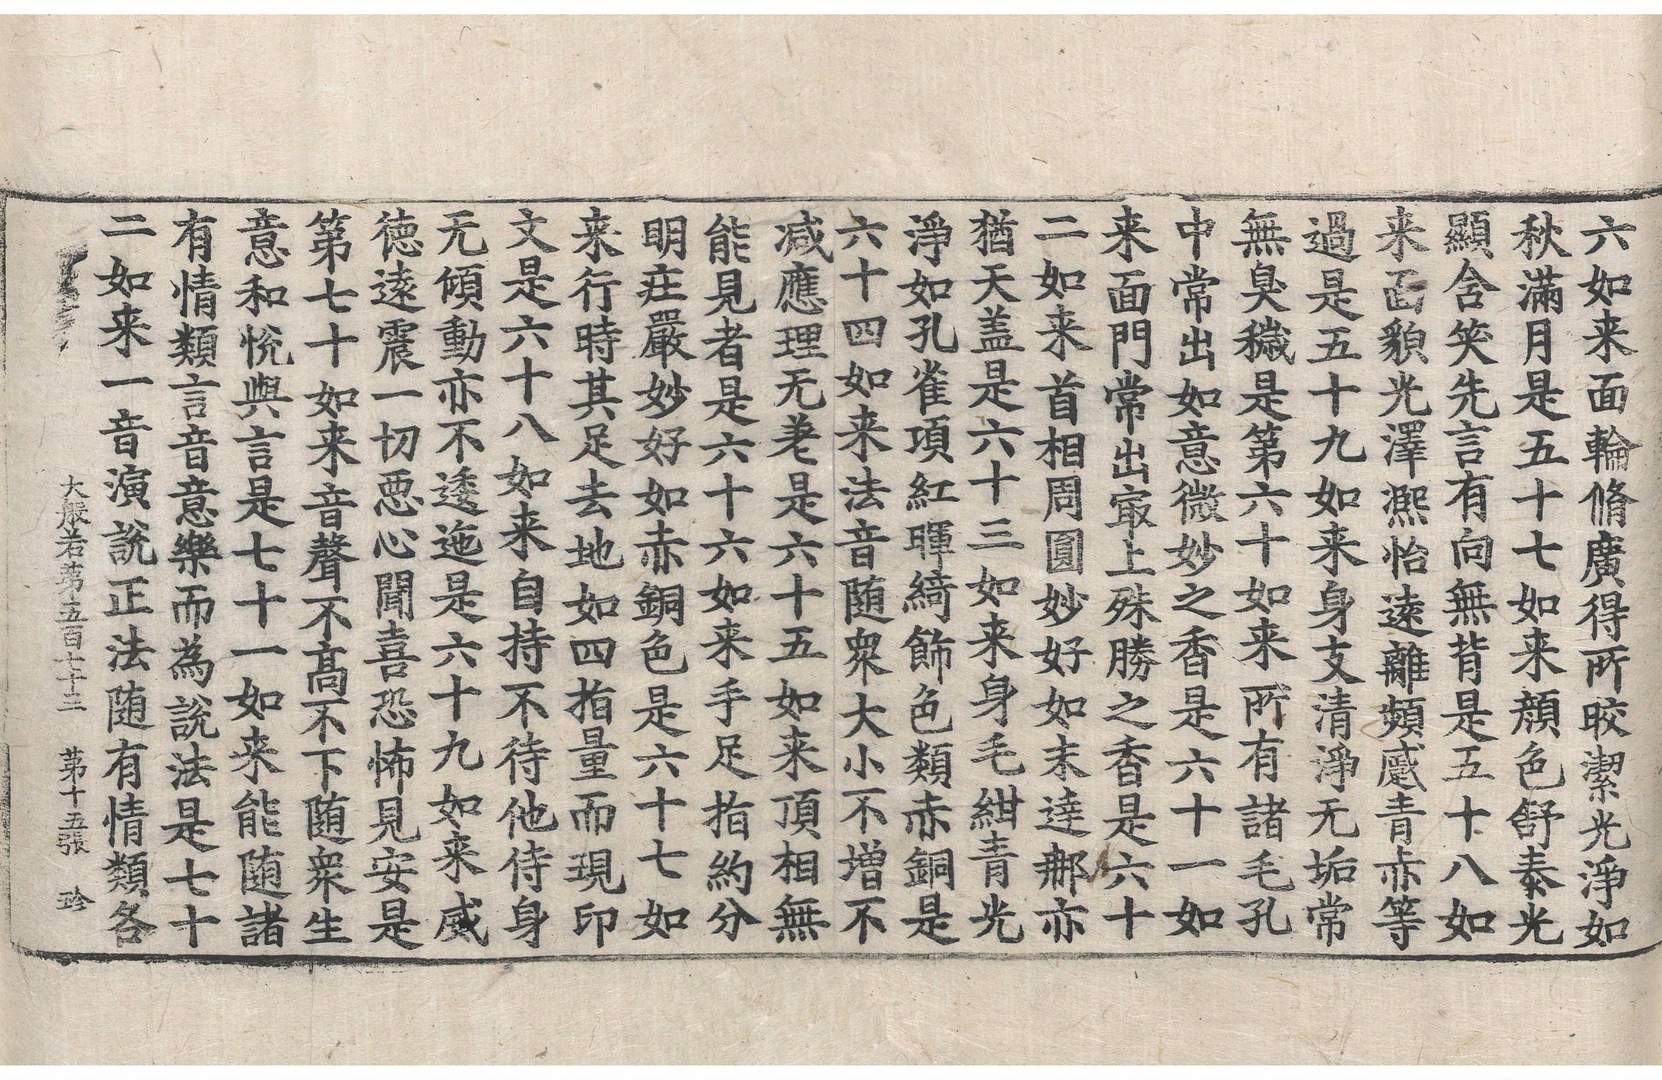 六如来面輪脩廣得所皎潔光淨如
秋滿月是五十七如来顔色舒泰光
顯含笑先言有向無背是五十八如
来面貌光澤熈怡遠離頻蹙青赤等
過是五十九如来身支清淨无垢常
無臭穢是第六十如来所有諸毛孔
中常出如意微妙之香是六十一如
来面門常出㝡上殊勝之香是六十
二如来首相周圓妙好如末達那亦
猶天盖是六十三如来身毛紺青光
淨如孔雀項紅暉綺飾色類赤銅是
六十四如来法音随衆大小不增不
减應理无差是六十五如来頂相無
能見者是六十六如来手足指約分
明莊嚴妙好如赤銅色是六十七如
来行時其足去地如四指量而現印
文是六十八如来自持不待他侍身
无傾動亦不逶迤是六十九如来威
德遠震一切惡心聞喜恐怖見安是
第七十如来音聲不高不下随衆生
意和悅與言是七十一如来能随諸
有情類言音意樂而為說法是七十
二如来一音演說正法随有情類各
大般若第五百七十三　第十五張　珍